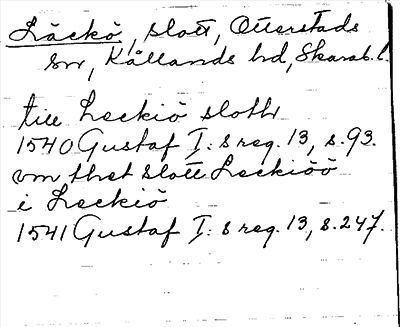 Läckö, slott, Otterstads
sn, Kållands hd, Skarab. l.
till Leckiö sloth
1540 Gustaf I: s reg. 13, s. 93.
vm thet slott Leckiöö
i Leckiö
1541 Gustaf I: s reg. 13, s. 247.